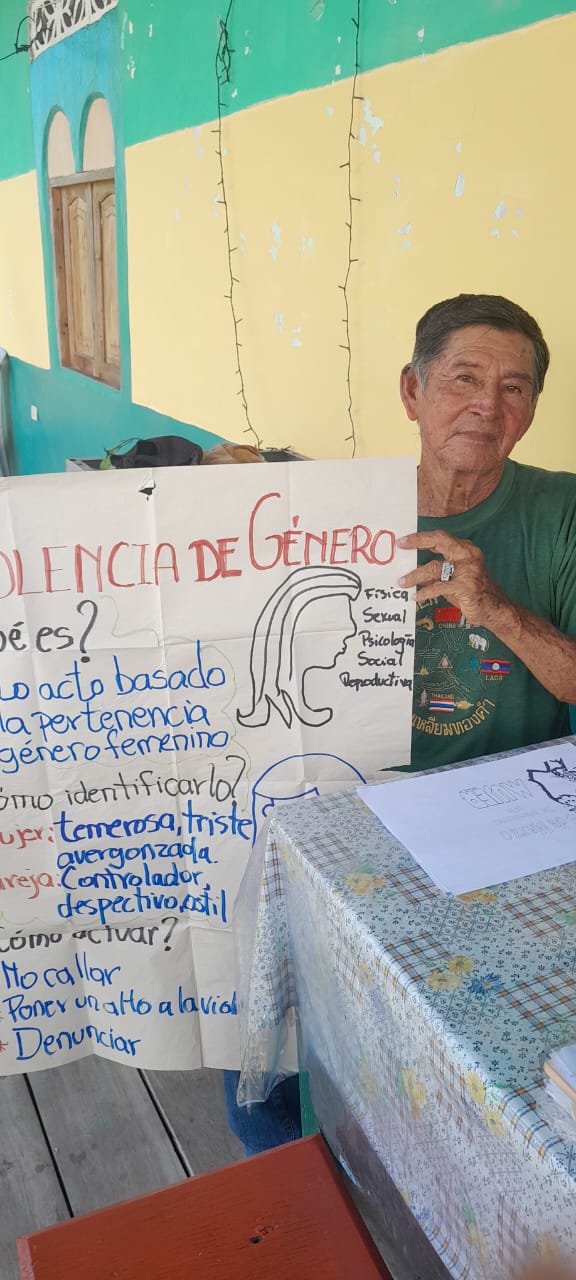 OLENCIA DE GÉNERO
é es?
o acto basado
la pertenencia
género femenino
Física
Sexual
Psicología
Social
Reproductiva
ómo identificarlo?
ujer: temerosa, triste
avergonzada.
reja: Controlador,
despectivo, ostil
Cómo actuar?
No callar
* Poner un alto a la viol
* Denunciar
CHINA
LAOS
THAILAND